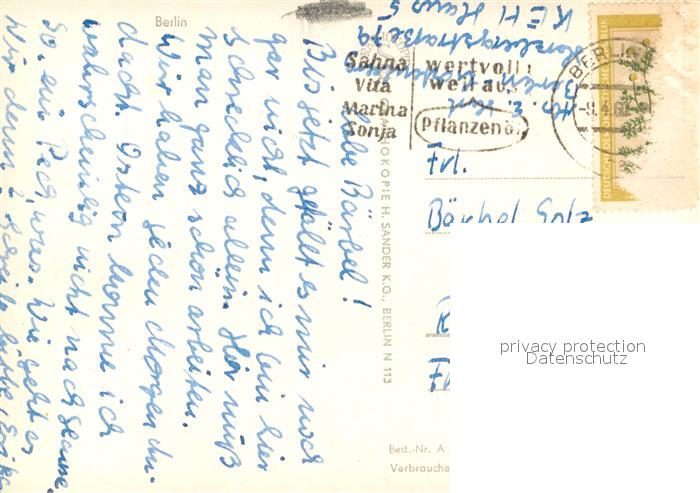 Berlin
Liebe Bärbel!
Bis jetzt gefällt es mir noch
gar nicht, denn ich bin hier
schrecklich allein. Hier muß
man ganz schön arbeiten.
Wir haben jeden Morgen
dacht. Ostern komme ich
wahrscheinlich nicht nach Hause.
So ein Pech, was. Wie geht es
Dir denn? Schreibe bitte
Sahna
Vita
Marina
Sonja
wertvoll
weil aus
Pflanzenö
BERLIN
DEUTSCHE DEMOKRATISCHE REPUBLIK
Berlin
straße 79
KEH Haus 5
Frl.
Bärbel
HOKOPIE H. SANDER K.G., BERLIN N 113
Best.-Nr. A
Verbrauche
privacy protection
Datenschutz